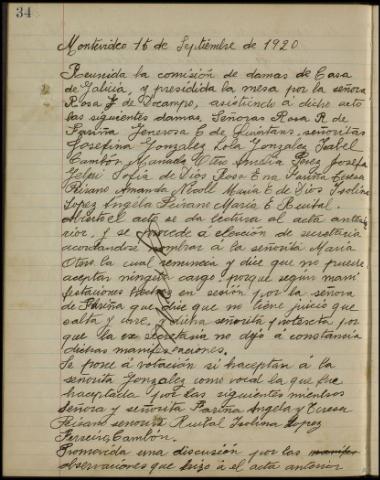 34
Montevideo 15 de Septiembre de 1920
Reunida la comisión de damas de Casa
de Galicia, y presidida la mesa por la señora
Rosa de Docampo, asistiendo a dicho acto
las siguientes damas, Señoras Rosa R de
Fariña Generosa C de Quintans, señoritas
Josefina Gonzalez Lola Gonzalez Isabel
Cambón, Otro Amelia Perez Josefa
Sofia de Dios Rosa Ena Fariña Teresa
Piñane Amanda Maria E de Dios Isolina
Lopez Angela Piñane Maria E Ruital.
Abierto el acto se da lectura al acta ante
rior, y se procede á elección de secretaria
acordandose nombrar á la señorita Maria
Otero la cual renuncia y dice que no puede
aceptar ningún cargo porque según mani
festaciones hechas en seción por la señora
de Fariña que dice que no tiene juicio que
salta y core, dicha señorita protesta por
que la ex secretaria no dejó á constancia
dichas manifestaciones.
Se pone á votación si haceptan á la
señorita Gonzalez como vocal la que fue
haceptada por las siguientes miembros
Señora y señorita Fariña Angela y Teresa
Piñane señorita Ruital Isolina Lopez
Ferreiro, Cambón.
Promovida una discusión por las
observaciones que hizo á el acta anterior